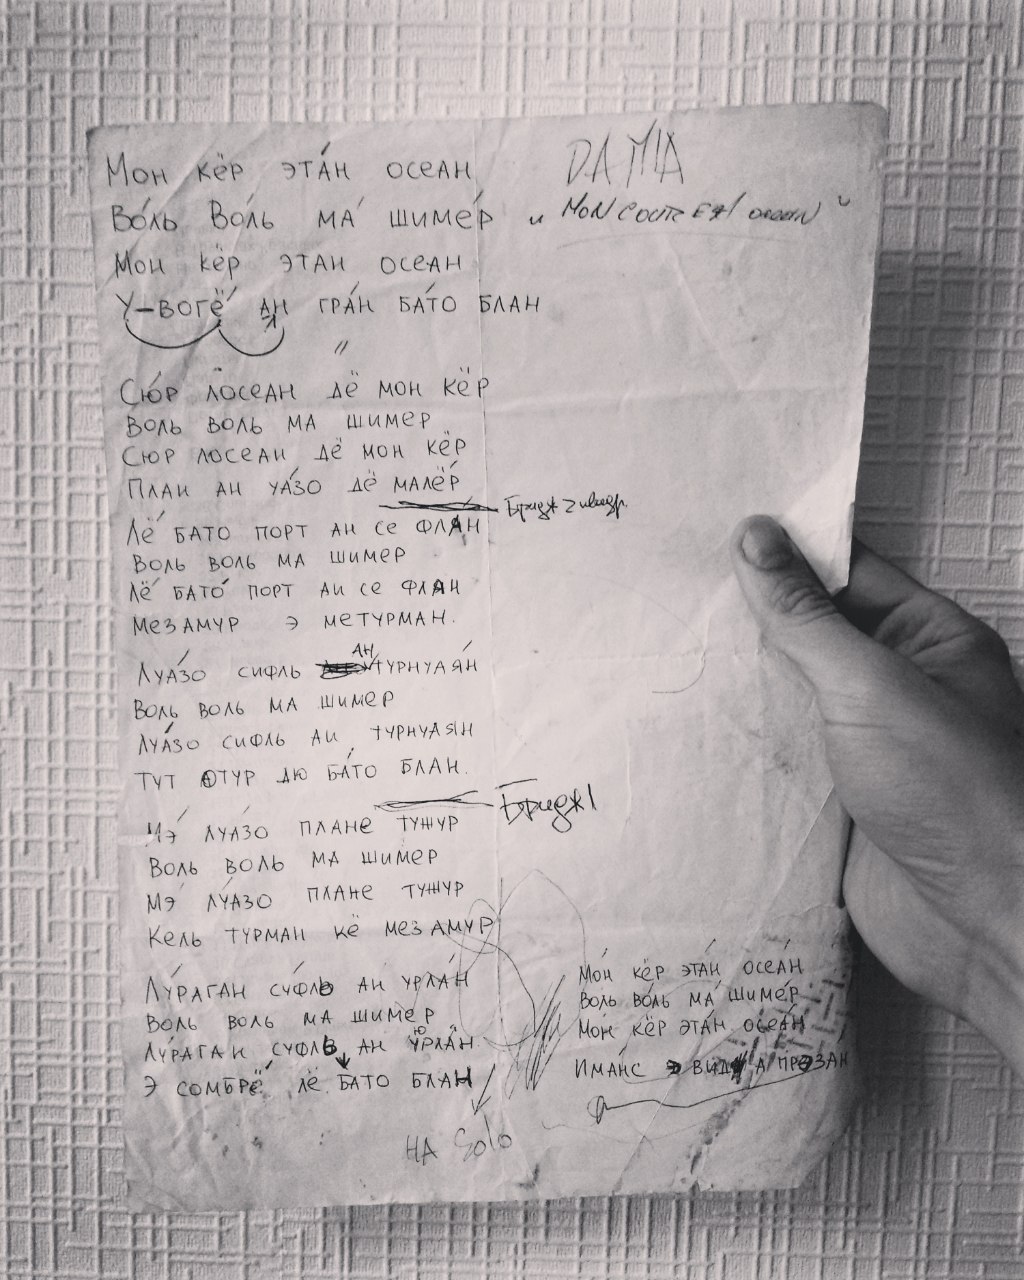 Мон кёр эта́н осеан
DAMIA
Во́ль Во́ль ма́ шиме́р
"Mon coeur est ocean"
Мон кёр этан осеан
У-вогё а́н гра́н ба́то блан
"
Сю́р лосеан дё мон кёр
Воль воль ма шимер
Сюр лосеан дё мон кёр
План ан уа́зо дё малё́р
Бридж 2
Лё бато порт ан се флан
Воль воль ма шимер
Лё бато́ порт ан се флан
Мезамур э метурман.
Луа́зо сифль ан турнуая́н
Воль воль ма шимер
Луа́зо сифль ан турнуаян
Тут отур дю ба́то блан.
Бридж 1
Мэ́ луа́зо плане тужур
Воль воль ма шимер
Мэ́ луа́зо плане тужур
Кель турман кё мез амур
Лу́раган су́фль ан урла́н
Воль воль ма шимер
Лу́раган суфль ан юрлан
Э сомбрё лё бато блан
на Solo
Мо́н кёр эта́н осеа́н
Воль во́ль ма́ шиме́р
Мо́н кёр эта́н о́сеа́н
Има́нс э вид а презан